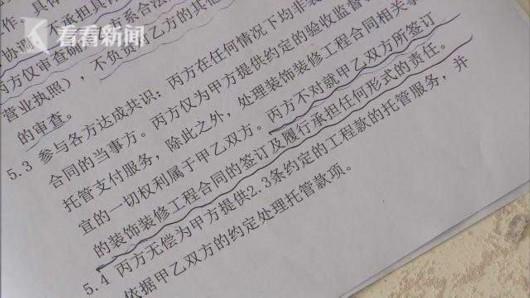 看看新闻
作，具体
协助
丙方仅审查
系合法
营业执照），不负责乙方的其他
的审查。
5.3 参与各方达成共识：丙方在任何情况下均非装
合同的当事方。丙方仅为甲方提供约定的验收监督
托管支付服务，除此之外，处理装饰装修工程合同相关事
宜的一切权利属于甲乙双方。丙方不对就甲乙双方所签订
的装饰装修工程合同的签订及履行承担任何形式的责任。
5.4 丙方无偿为甲方提供2.3条约定的工程款的托管服务，并
依据甲乙双方的约定处理托管款项。